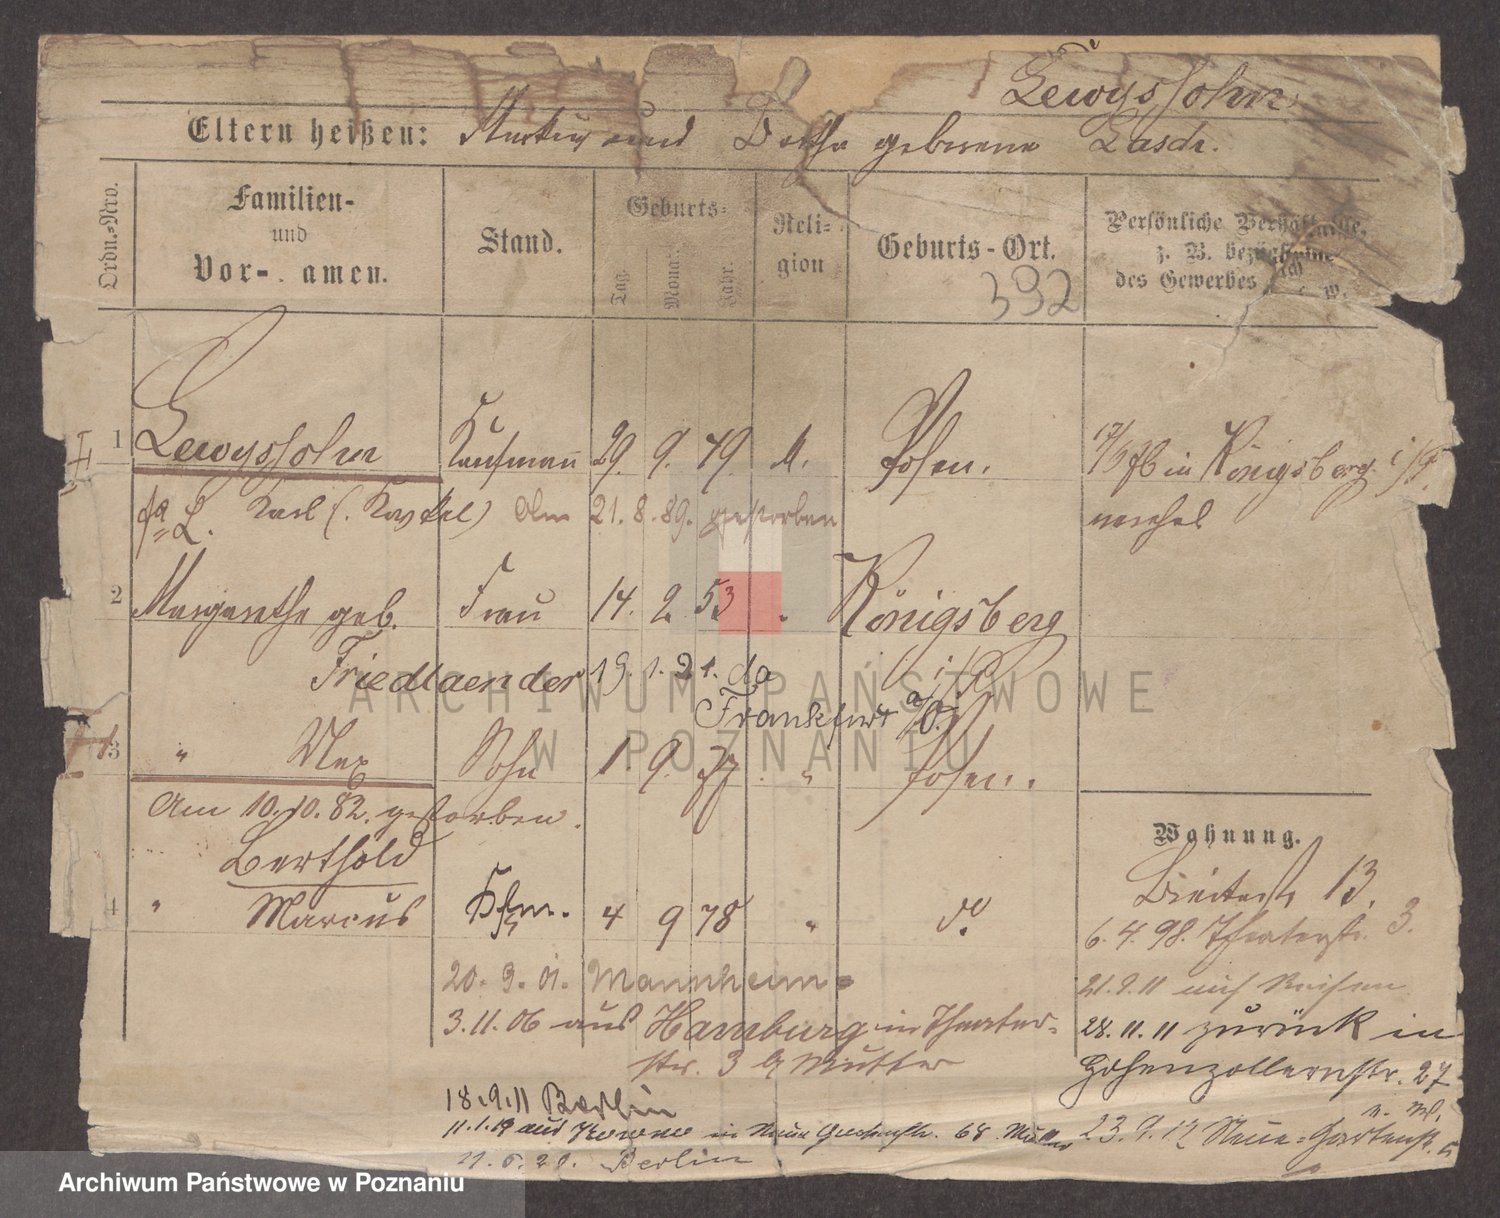 Lewyssohn
Eltern heißen: Markus und Bertha geborene Lasch.
Ordn.-Nro.
Familien-
und
Vor- amen.
Stand.
Geburts-
Tag. Monat. Jahr.
Reli-
gion
Geburts-Ort.
392
Persönliche Verhältnisse,
z. B. bezüglich
des Gewerbes w.
1 Lewyssohn Kaufmann 29. 9. 49. M. Posen. in Königsberg i/Pr.
L. Karl (. Kaskel) Am 21. 8. 89. gestorben
2 Margarethe geb. Frau 14. 2. 53 Königsberg
Friedlaender 19. 1. 21. da i/P
Frankfurt a/O.
3 " Max Sohn 1. 9. 77. " Posen.
Am 10.10.82. gestorben.
Wohnung.
Berthold
Breitestr 13.
4 " Marcus Kfm. 4 9 78 " do.
6. 4. 98. Theaterstr. 3.
20. 9. 01. Mannheim
21.9.11 auf Reisen
3.11.06 aus Hamburg in Theater-
str. 3 Mutter
28.11.11 zurück in
Hohenzollernstr. 27
18.9.11 Berlin
11.1.19 aus Kowno in Neue Gartenstr. 68 Mutter
23.9.12 Neue-Gartenstr.
21.6.21. Berlin
ARCHIWUM PAŃSTWOWE
W POZNANIU
Archiwum Państwowe w Poznaniu